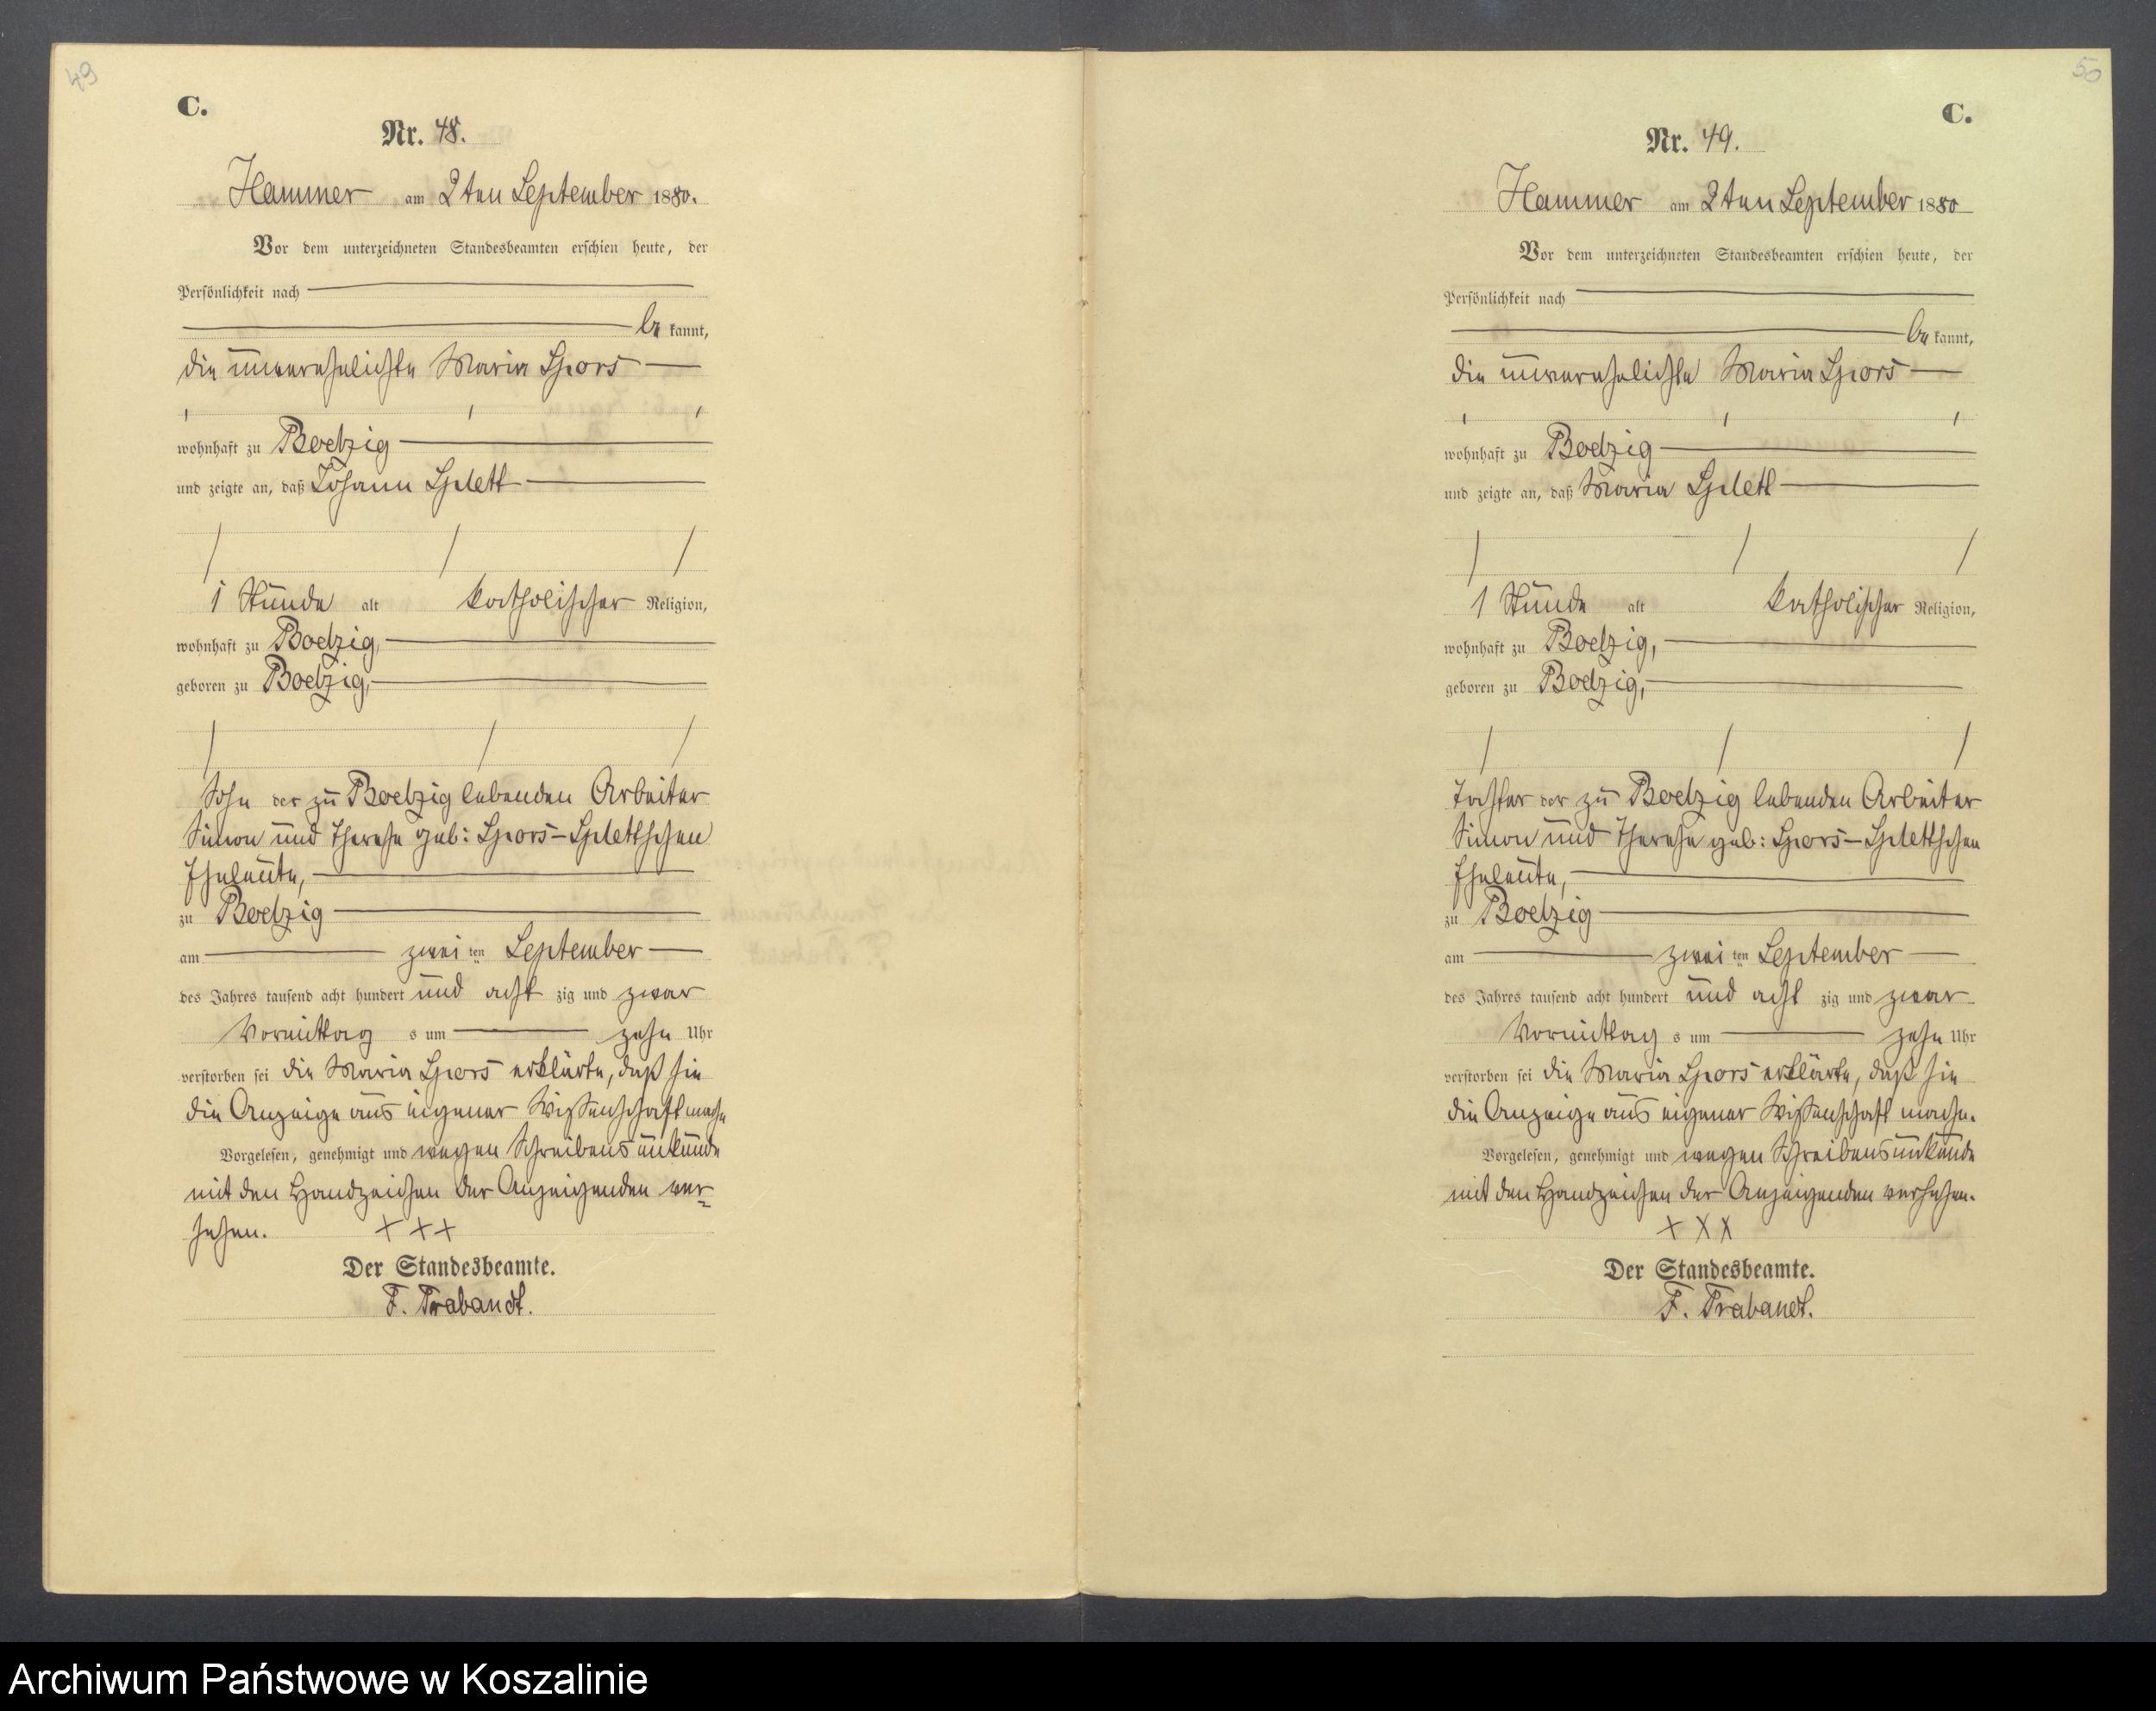 49
C.
Nr. 48.
Hammer am 2ten September 1880.
Vor dem unterzeichneten Standesbeamten erschien heute, der
Persönlichkeit nach
be kannt,
die unverehelichte Maria Spors
wohnhaft zu Boetzig
und zeigte an, daß Johann Splett
1 Stunde alt katholischer Religion,
wohnhaft zu Boetzig,
geboren zu Boetzig,
Sohn der zu Boetzig lebenden Arbeiter
Simon und Therese geb: Spors-Splettschen
Eheleute,
zu Boetzig
am zwei ten September
des Jahres tausend acht hundert und acht zig und zwar
Vormittag s um zehn Uhr
verstorben sei die Maria Spors erklärte, daß sie
die Anzeige aus eigener Wissenschaft mache
Vorgelesen, genehmigt und wegen Schreibensunkunde
mit den Handzeichen der Anzeigenden ver=
sehen. + + +
Der Standesbeamte.
F. Trabandt.
50
C.
Nr. 49.
Hammer am 2ten September 1880
Vor dem unterzeichneten Standesbeamten erschien heute, der
Persönlichkeit nach
be kannt,
die unverehelichte Maria Spors
wohnhaft zu Boetzig
und zeigte an, daß Maria Splett
1 Stunde alt katholischer Religion,
wohnhaft zu Boetzig,
geboren zu Boetzig,
Tochter der zu Boetzig lebenden Arbeiter
Simon und Therese geb: Spors-Splettschen
Eheleute,
zu Boetzig
am zwei ten September
des Jahres tausend acht hundert und acht zig und zwar
Vormittag s um zehn Uhr
verstorben sei die Maria Spors erklärte, daß sie
die Anzeige aus eigener Wissenschaft mache.
Vorgelesen, genehmigt und wegen Schreibensunkunde
mit den Handzeichen der Anzeigenden versehen.
+ X X
Der Standesbeamte.
F. Trabandt.
Archiwum Państwowe w Koszalinie